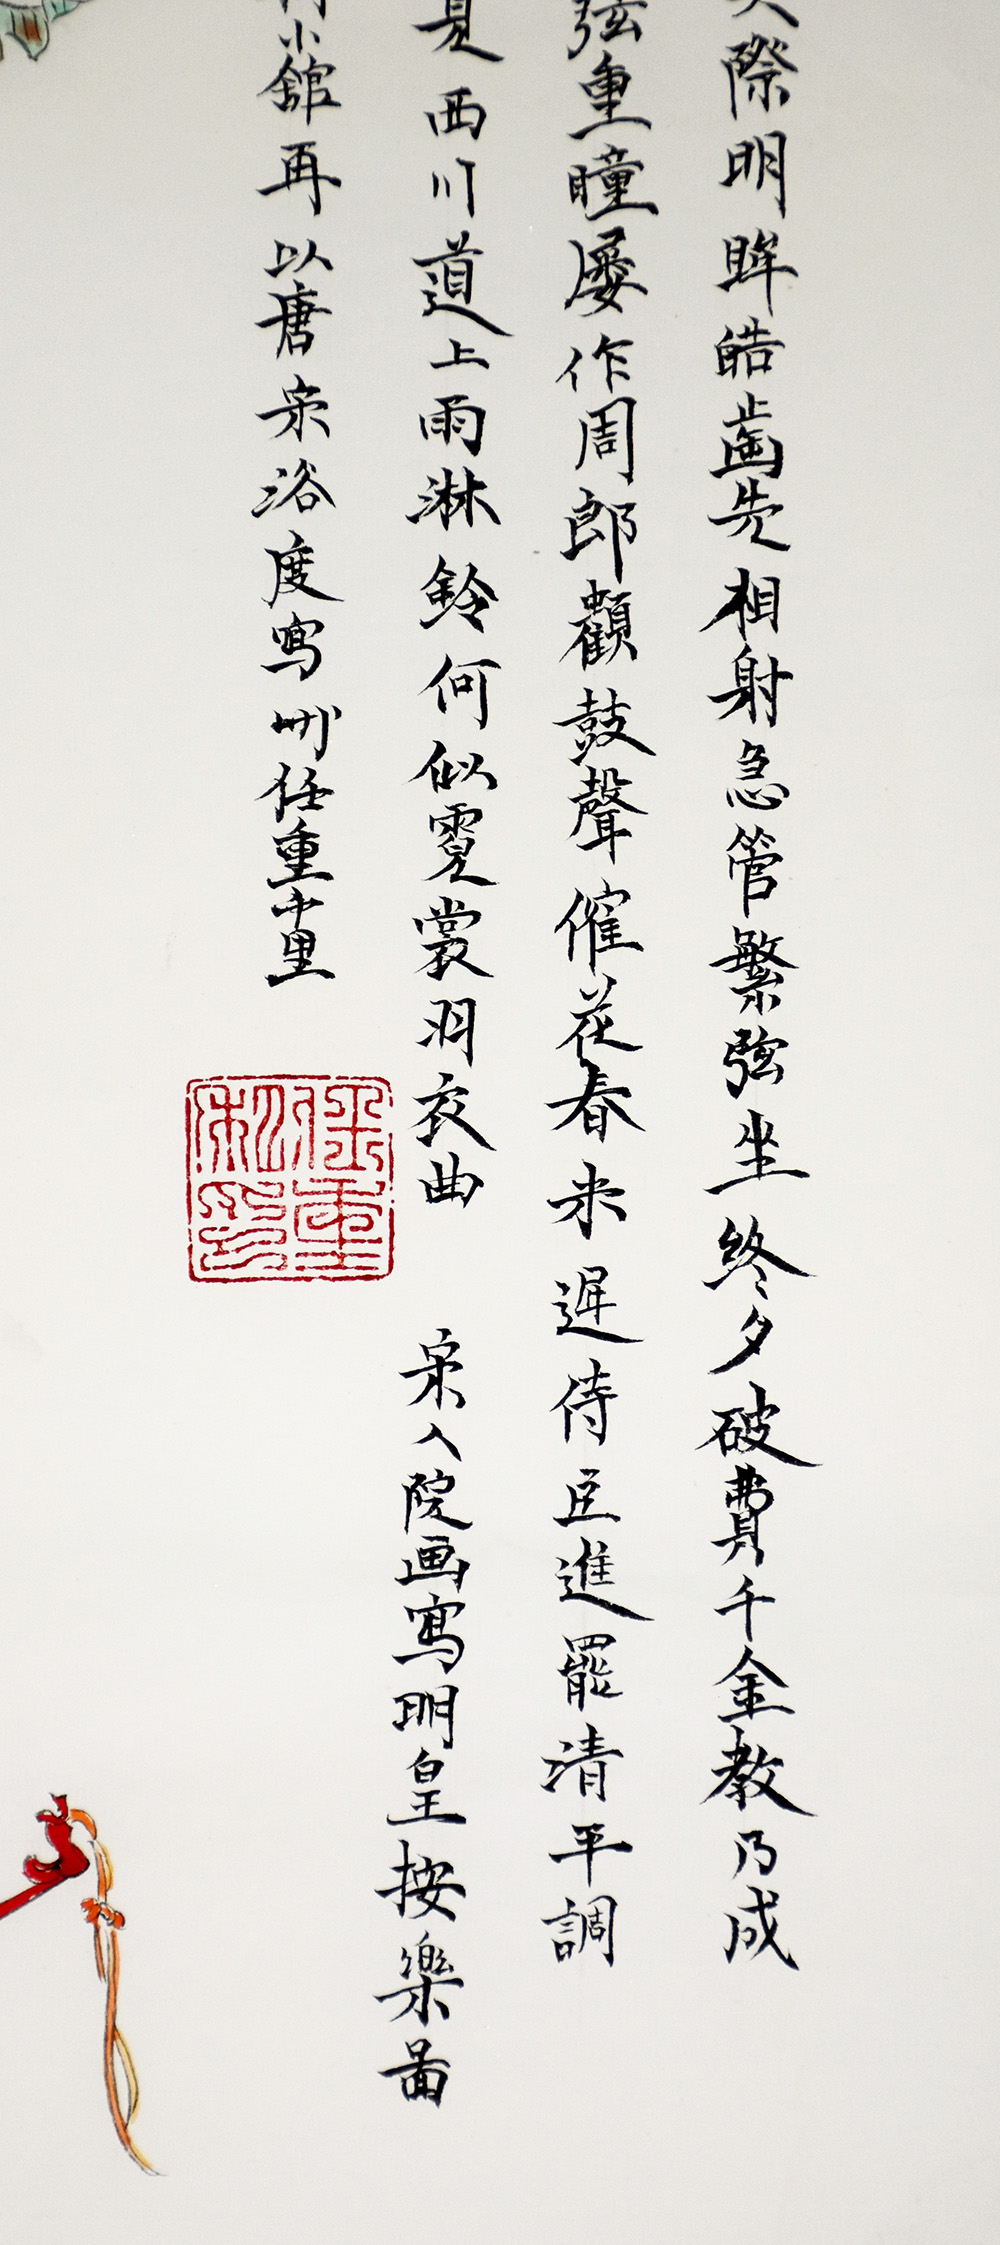 際明眸皓齒先相射急管繁弦坐終夕破費千金教乃成
弦重瞳屢作周郎顧鼓聲催花春未遲侍臣進罷清平調
見西川道上雨淋鈴何似霓裳羽衣曲 宋人院画寫明皇按樂啚
小舘再以唐宋浴度寫 任重
任重私印